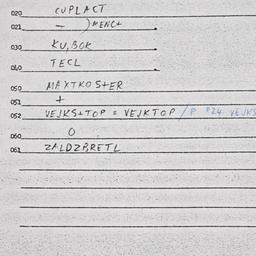 020 CUPLACT
021 — )MENC+
030 KU,BOK
040 TECL
050 MAXTKOS+ER
051 +
052 VEJKS+TOP = VEJKTOP / P 024 VEJKS
060 O
061 ZALDZBRETL